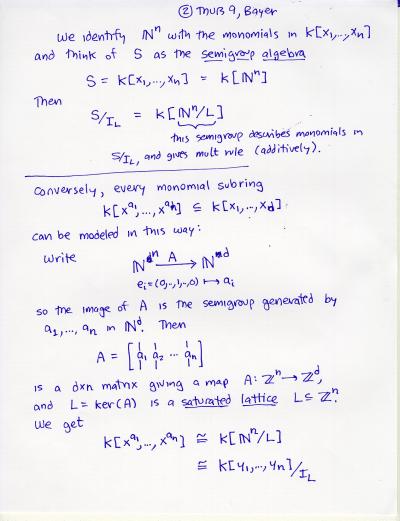 ② Thurs 9, Bayer
We identify ℕⁿ with the monomials in k[x₁,…,xₙ]
and think of S as the semigroup algebra
S = k[x₁,…,xₙ] = k[ℕⁿ]
Then
S/I_L = k[ℕⁿ/L]
this semigroup describes monomials in
S/I_L, and gives mult rule (additively).
Conversely, every monomial subring
k[x^{a₁},…,x^{aₙ}] ⊆ k[x₁,…,x_d]
can be modeled in this way:
Write
ℕⁿ —A→ ℕ^d
eᵢ=(0,..,1,..,0) ↦ aᵢ
so the image of A is the semigroup generated by
a₁,…,aₙ in ℕ^d. Then
A = [a₁ a₂ ⋯ aₙ]
is a d×n matrix giving a map A: ℤⁿ → ℤ^d,
and L = ker(A) is a saturated lattice L ⊆ ℤⁿ.
We get
k[x^{a₁},…,x^{aₙ}] ≅ k[ℕⁿ/L]
≅ k[y₁,…,yₙ]/I_L